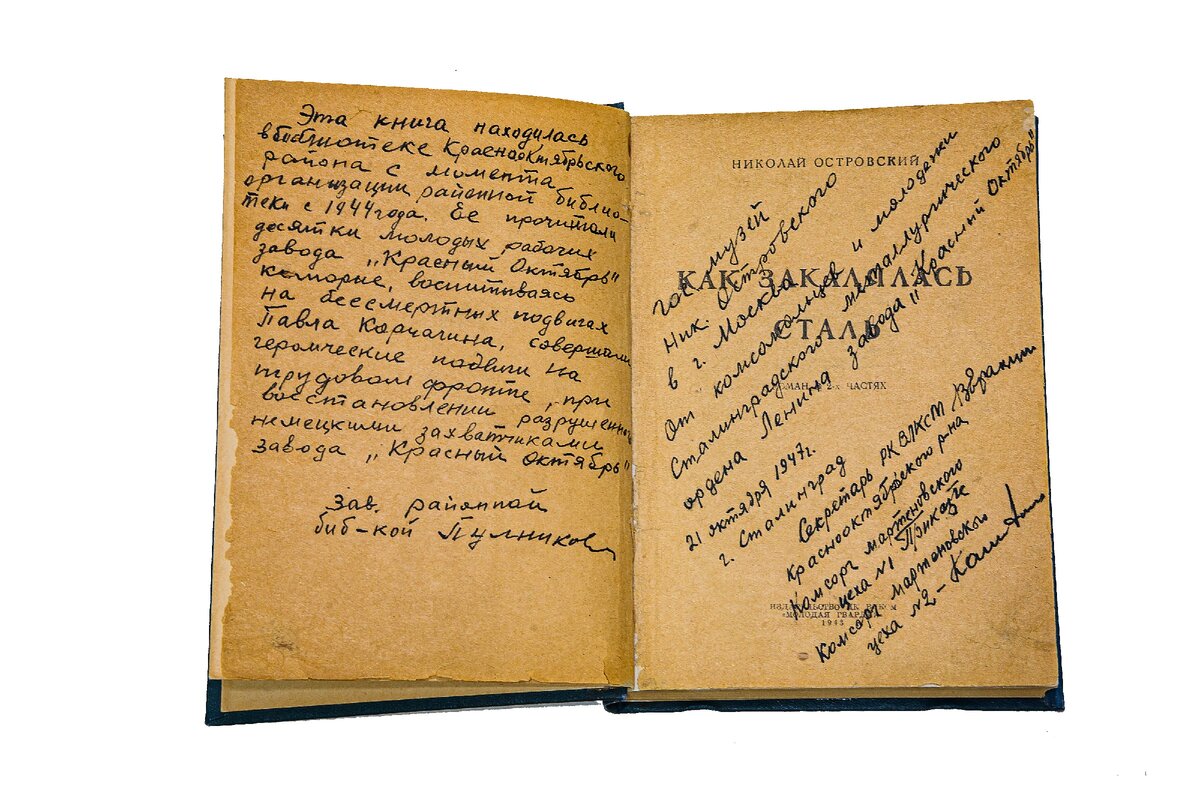 Эта книга находилась
в библиотеке Краснооктябрьского
района с момента
организации районной библио-
теки с 1944 года. Ее прочитали
десятки молодых рабочих
завода „Красный Октябрь"
которые, воспитываясь
на бессмертных подвигах
Павла Корчагина, совершали
героические подвиги на
трудовом фронте, при
восстановлении разрушенного
немецкими захватчиками
завода „Красный Октябрь"
зав. районной
биб-кой
НИКОЛАЙ ОСТРОВСКИЙ
КАК ЗАКАЛЯЛАСЬ
СТАЛЬ
РОМАН В 2-х ЧАСТЯХ
ИЗДАТЕЛЬСТВО ЦК ВЛКСМ
«МОЛОДАЯ ГВАРДИЯ»
1943
Гос музей
Ник. Островского
в г. Москве
От комсомольцев и молодежи
Сталинградского металлургического
ордена Ленина завода „Красный Октябрь"
21 октября 1947г.
г. Сталинград
Секретарь РК ВЛКСМ
Краснооктябрьского р-на
Комсорг мартеновского
цеха №1
Комсорг мартеновского
цеха №2 –